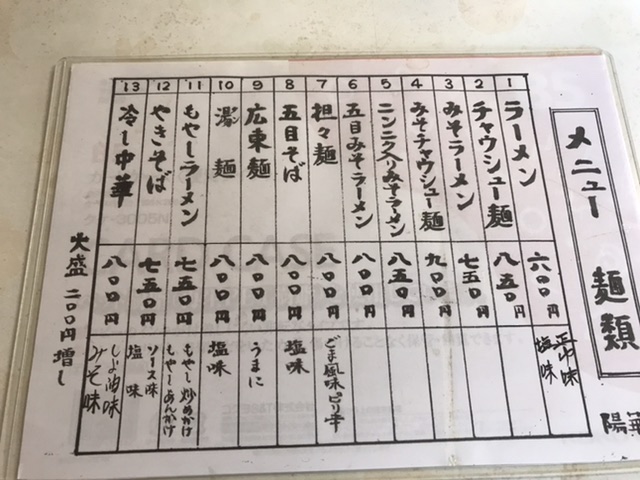 メニュー 麺類
1 ラーメン 六〇〇円 正油味
塩味
2 チャウシュー麺 八五〇円
3 みそラーメン 七五〇円
4 みそチャウシュー麺 九〇〇円
5 ニンニク入みそラーメン 八五〇円
6 五目みそラーメン 八〇〇円
7 担々麺 八〇〇円 ごま風味ピリ辛
8 五目そば 八〇〇円 塩味
9 広東麺 八〇〇円 うまに
10 湯麺 八〇〇円 塩味
11 もやしラーメン 七五〇円 もやし炒めかけ
もやしあんかけ
12 やきそば 七五〇円 ソース味
塩味
13 冷し中華 八〇〇円 しょ油味
みそ味
大盛 二〇〇円増し
陽